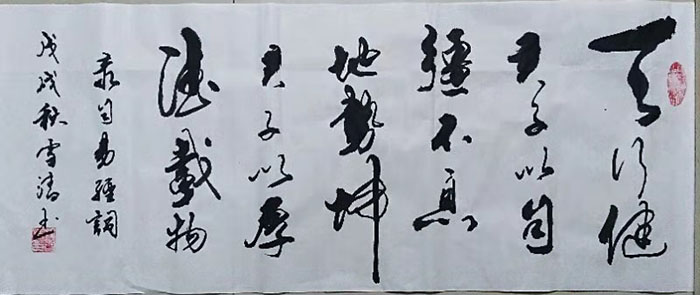 天行健
君子以自
强不息
地势坤
君子以厚
德载物
录自易经词
戊戌秋雪涛书